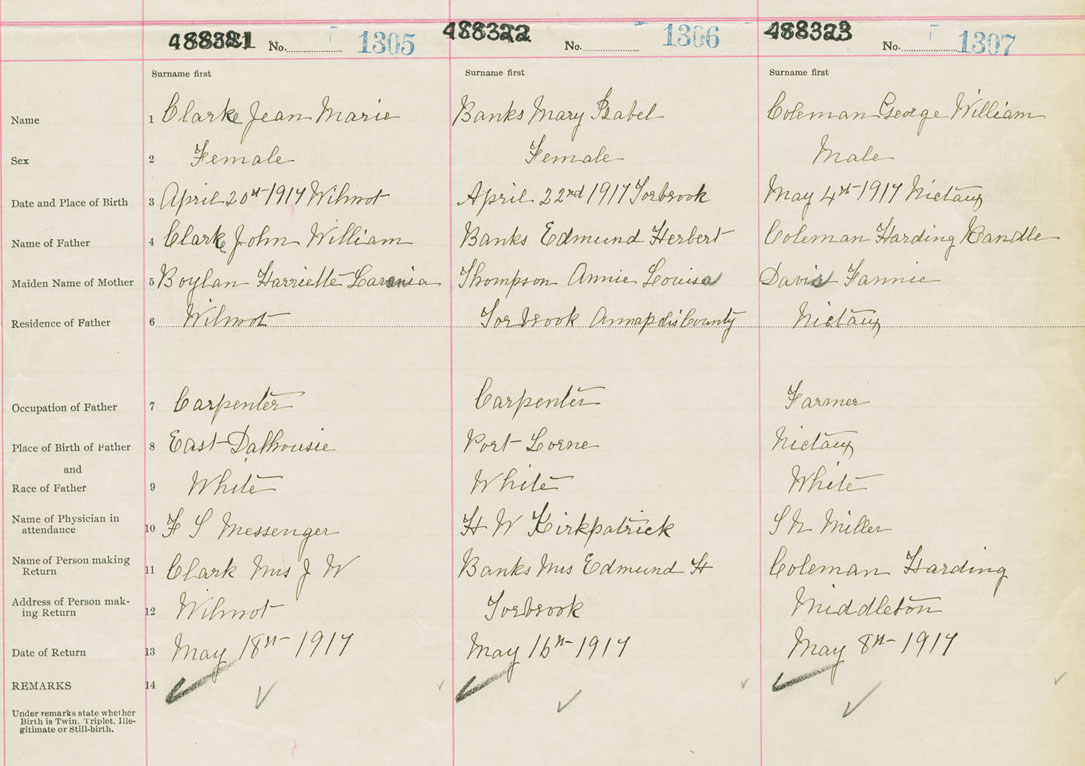 488321 No. 1305 488322 No. 1306 488323 No. 1307
Surname first Surname first Surname first
Name 1 Clarke Jean Marie Banks Mary Isabel Coleman George William
Sex 2 Female Female Male
Date and Place of Birth 3 April 20th 1917 Wilmot April 22nd 1917 Torbrook May 4th 1917 Nictaux
Name of Father 4 Clarke John William Banks Edmund Herbert Coleman Harding Randle
Maiden Name of Mother 5 Boylan Harriette Thompson Annie Louisa Davis Fannie
Residence of Father 6 Wilmot Torbrook Annapolis County Nictaux
Occupation of Father 7 Carpenter Carpenter Farmer
Place of Birth of Father 8 East Dalhousie Port Lorne Nictaux
and
Race of Father 9 White White White
Name of Physician in
attendance 10 F S Messenger H W Kirkpatrick S N Miller
Name of Person making
Return 11 Clark Mrs J W Banks Mrs Edmund H Coleman Harding
Address of Person mak-
ing Return 12 Wilmot Torbrook Middleton
Date of Return 13 May 18th 1917 May 16th 1917 May 8th 1917
REMARKS 14
Under remarks state whether
Birth is Twin, Triplet, Ille-
gitimate or Still-birth.